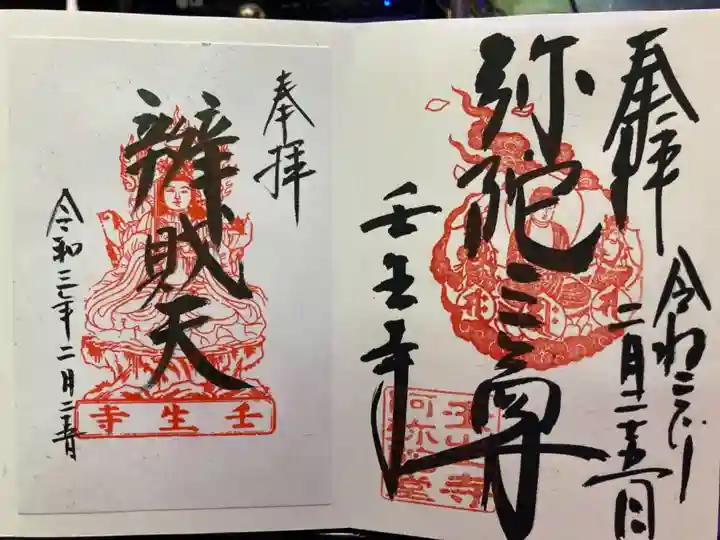 奉拝
令和三年二月二五日
弥陀三尊
壬生寺
壬生寺
阿弥陀堂
奉拝
辨財天
令和三年二月二十五日
壬生寺